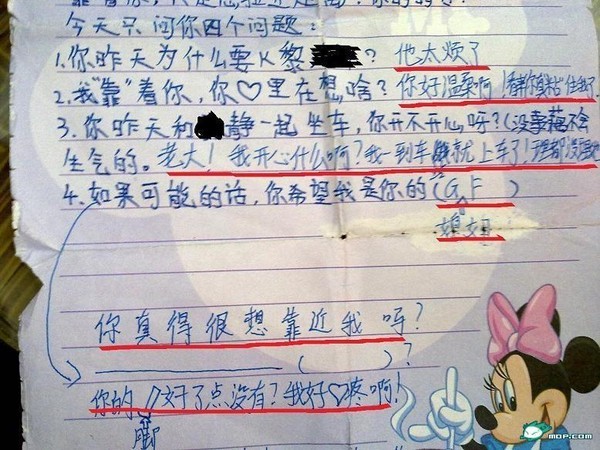 今天只问你四个问题:
1.你昨天为什么要K黎? 他太烦了
2.我"靠"着你,你♡里在想啥? 你好温柔啊!
3.你昨天和静一起坐车,你开不开心呀?(没事
生气的。老大!我开心什么啊?我一到车就上车了!
4.如果可能的话,你希望我是你的(G.F )
媳妇
你真得很想靠近我呀?
( )?
你的 好了点没有?我好♡疼啊!
脚
MOP.COM